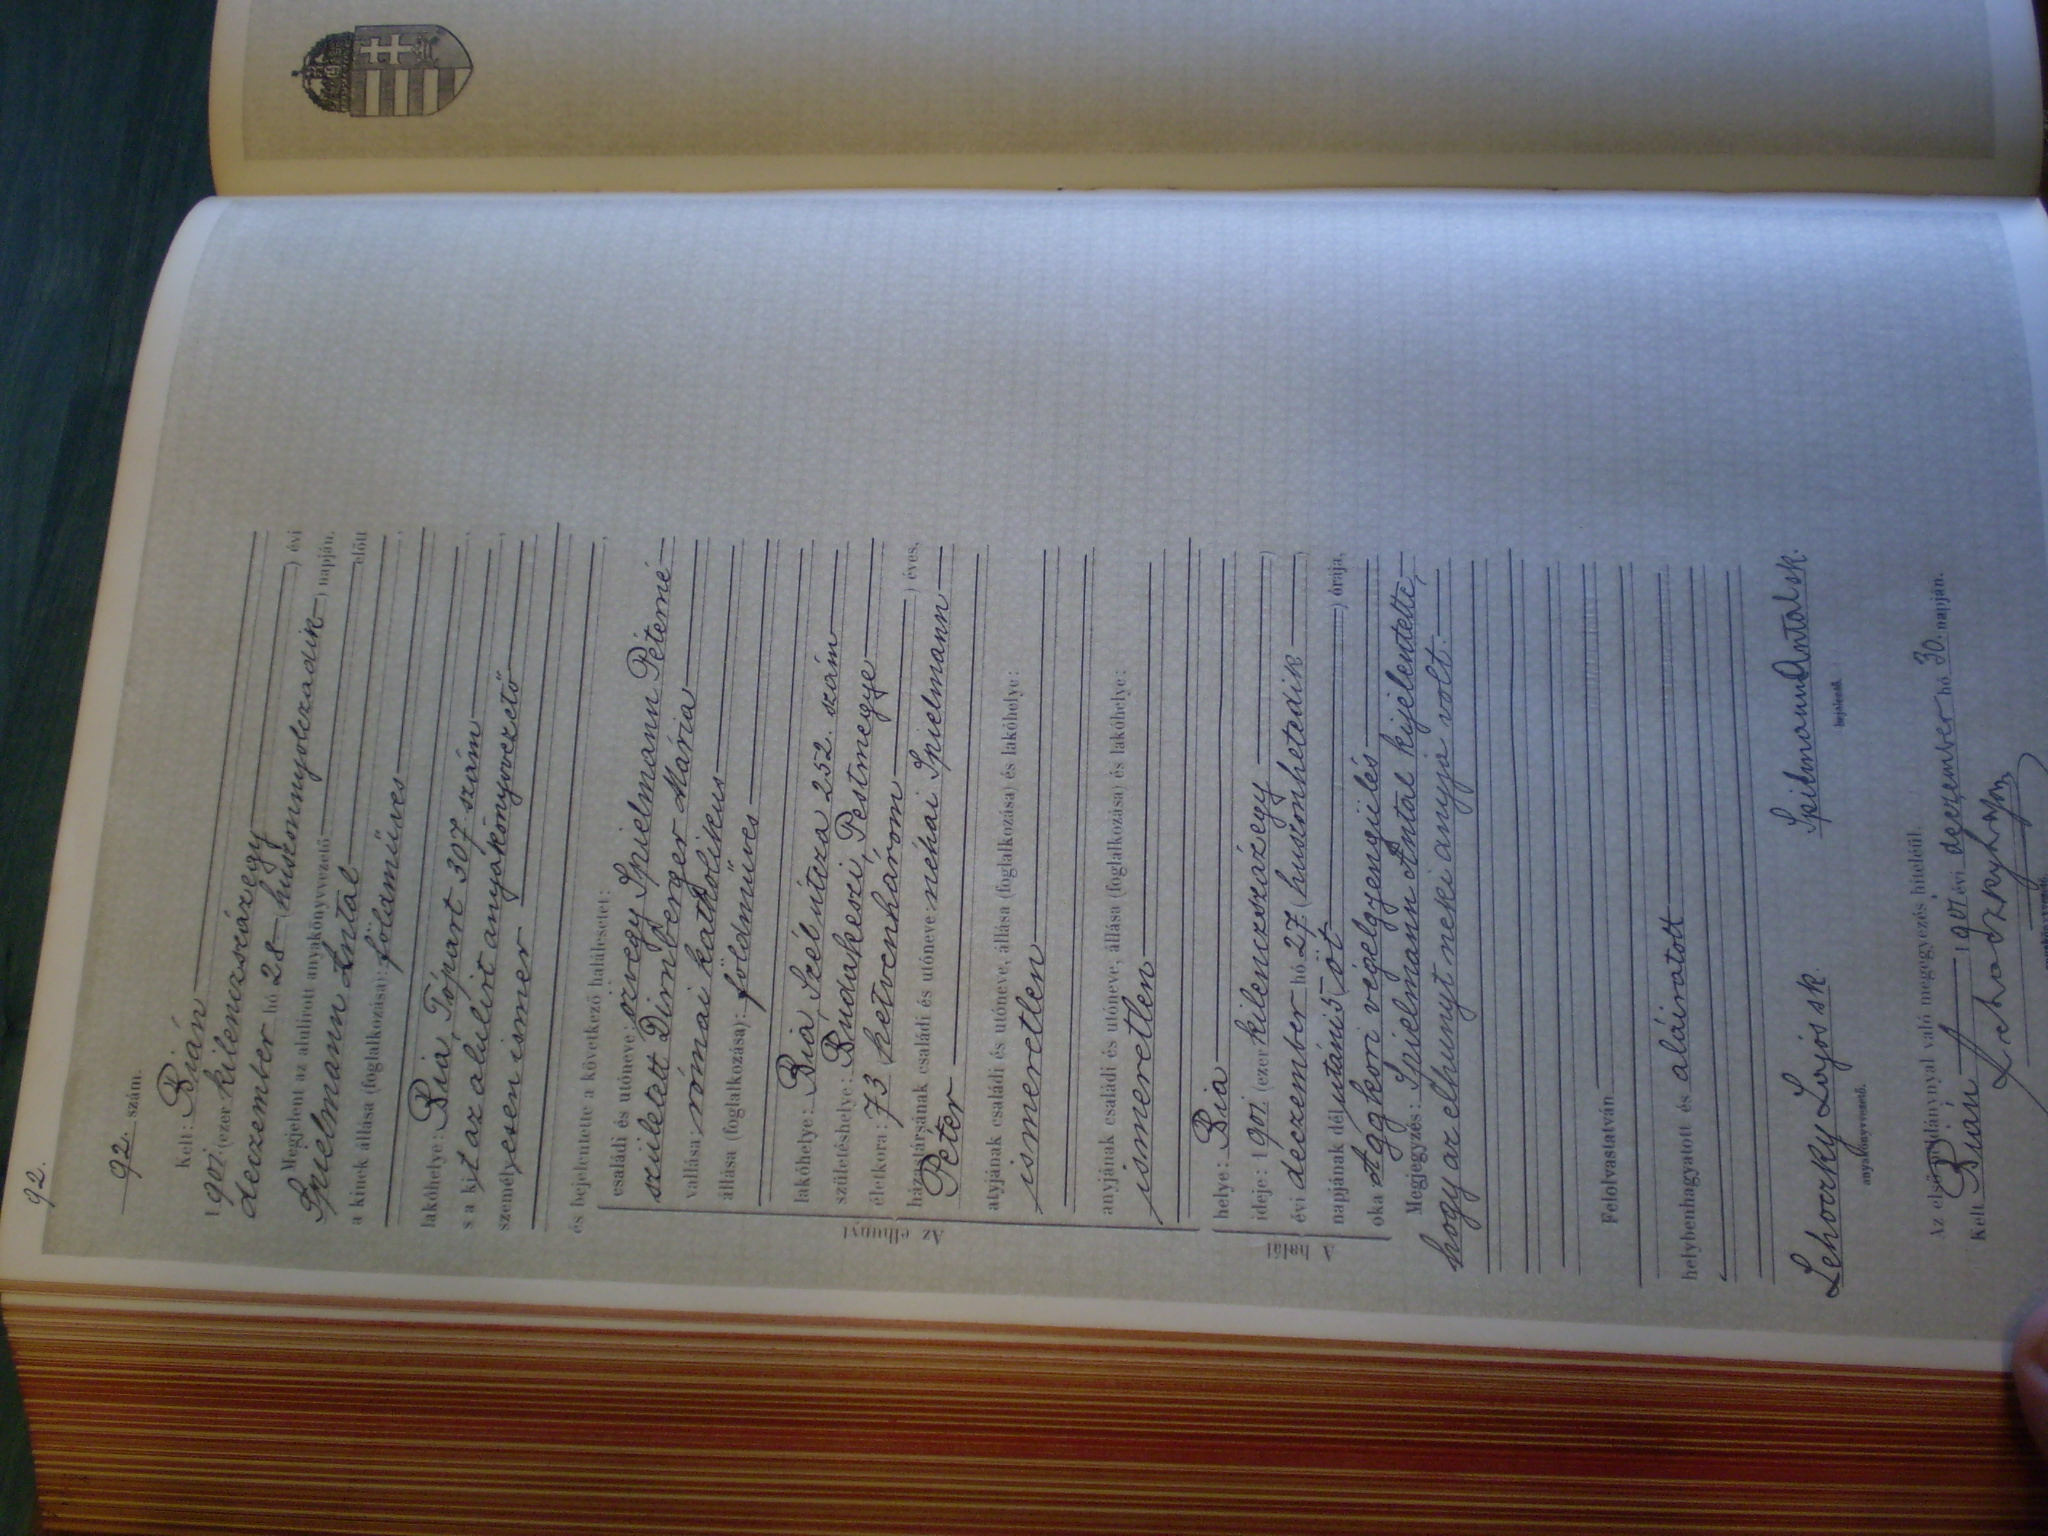 92.
92. szám.
Kelt: Bián
1901. (ezer kilenczszázegy
deczember hó 28 (huszonnyolczadik), napján.
Megjelent az alulirott anyakönyvvezető előtt
Spielmann Antal
a kinek állása (foglalkozása): földmüves
lakóhelye: Bia, Tópart 307 szám
s a kit az alulírt anyakönyvvezető
személyesen ismer
és bejelentette a következő halálesetet:
Az elhunyt
családi és utóneve: özvegy Spielmann Péterné
született Dirnberger Mária
vallása: római katholikus
állása (foglalkozása): földmüves
lakóhelye: Bia, Szél útcza 252. szám
születéshelye: Budakeszi, Pestmegye
életkora: 73 (hetvenhárom) éves,
házastársának családi és utóneve: néhai Spielmann
Péter
atyjának családi és utóneve, állása (foglalkozása) és lakóhelye:
ismeretlen
anyjának családi és utóneve, állása (foglalkozása) és lakóhelye:
ismeretlen
A halál
helye: Bia
ideje: 1901. (ezer kilenczszázegy)
évi deczember hó 27. (huszonhetedik)
napjának dél utáni 5 (öt) órája,
oka Aggkori végelgyengülés
Megjegyzés: Spielmann Antal kijelentette,
hogy az elhunyt neki anyja volt.
Felolvastatván
helybenhagyatott és aláiratott
Lehoczky Lajos sk. Spilmann Antal sk.
anyakönyvvezető. bejelentő.
Az első példánynyal való megegyezés hiteléül.
Kelt Bián 1901. évi deczember hó 30. napján.
Lehoczky Lajos